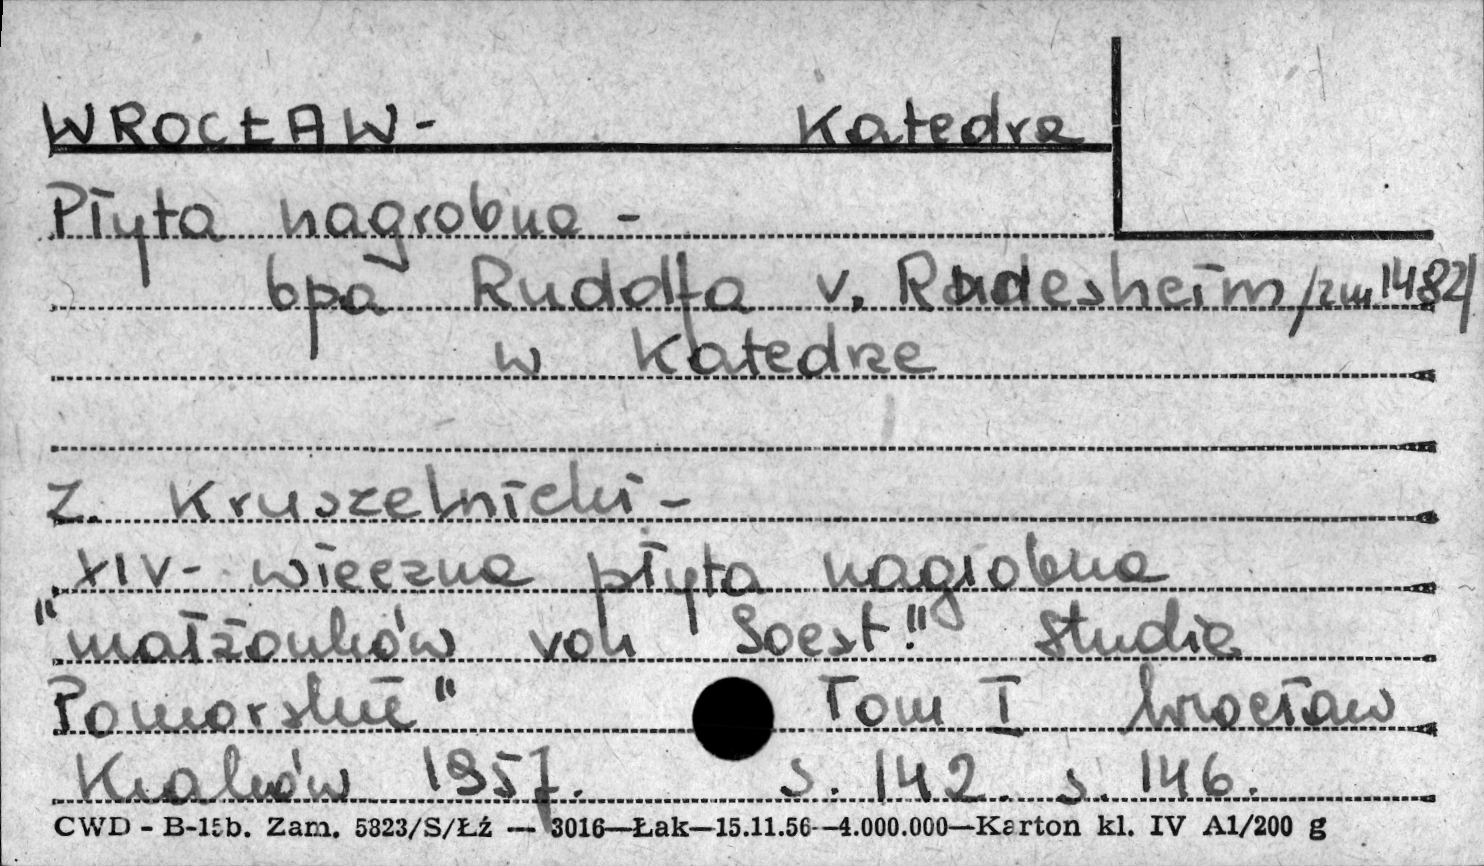 WROCŁAW - Katedra
Płyta nagrobna -
bpa Rudolfa v. Rudesheim /zm 1482/
w Katedrze
Z. Kruszelnicki -
"XIV - wieczna płyta nagrobna
małżonków von Soest." Studia
Pomorskie" Tom I Wrocław
Kraków 1957. s. 142. s. 146.
CWD - B-15b. Zam. 5823/S/Łź — 3016—Łak—15.11.56—4.000.000—Karton kl. IV A1/200 g